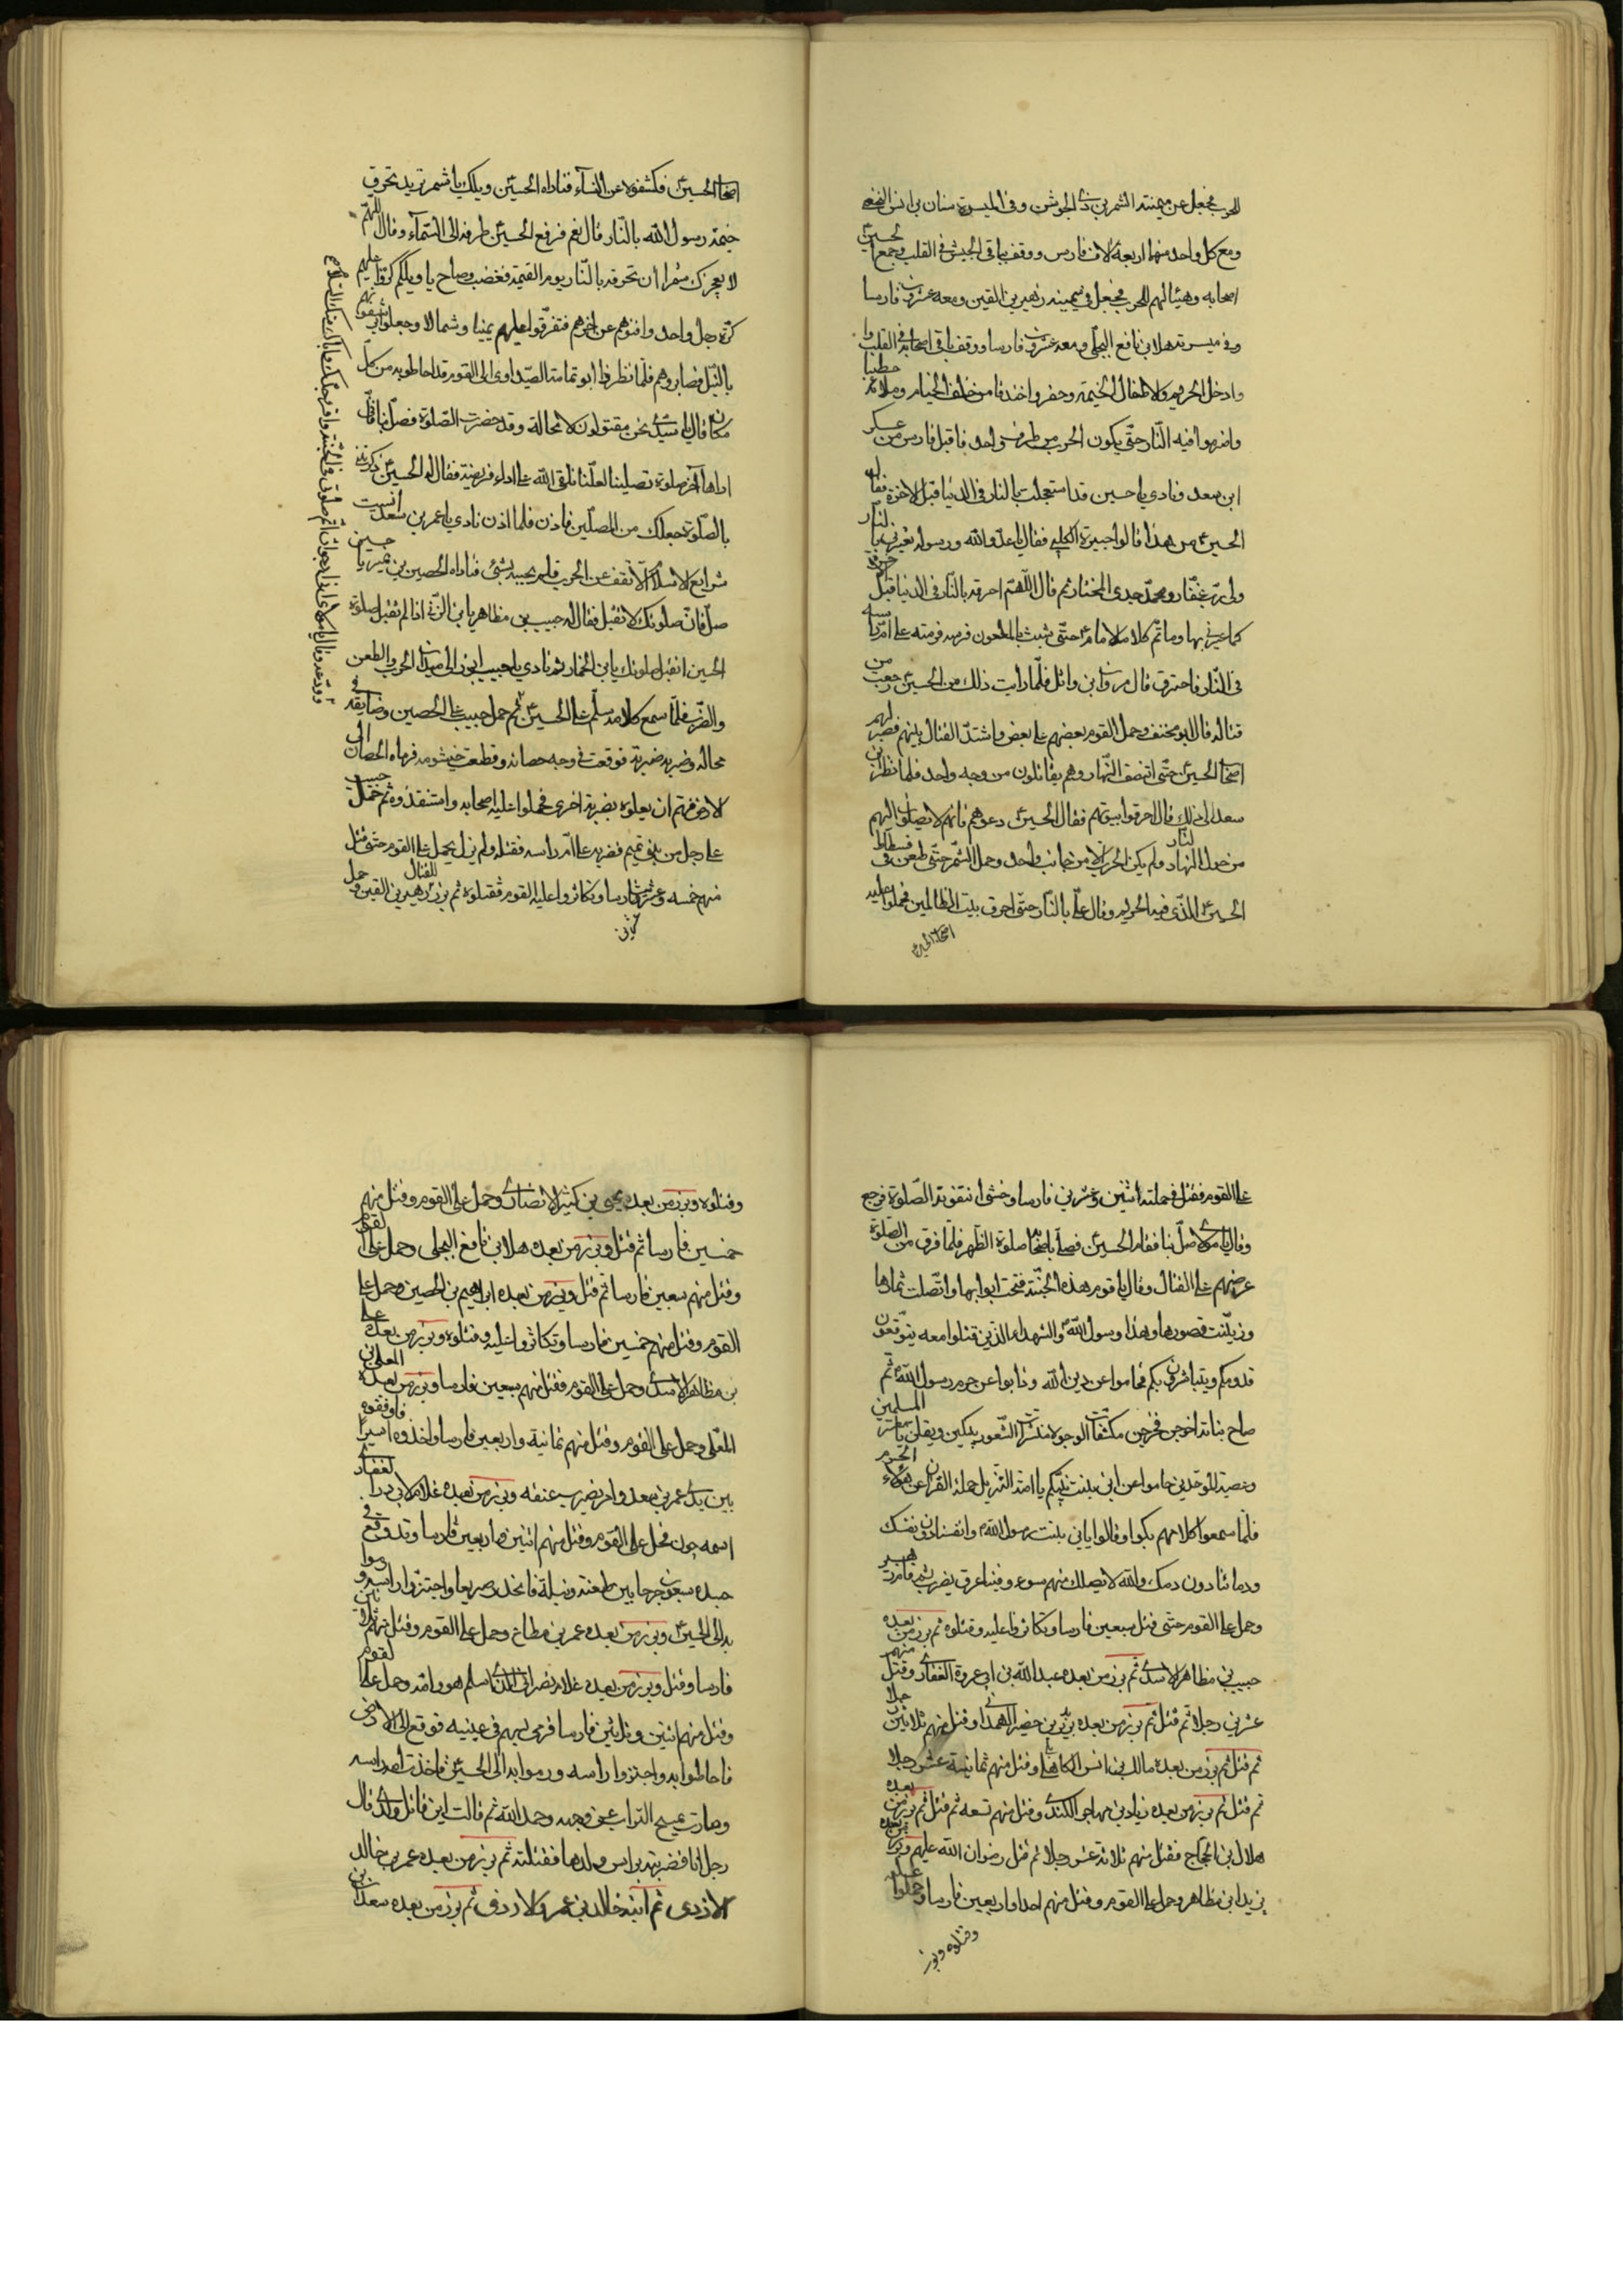 للحرب فجعل عن ميمنته الشمر بن ذي الجوشن وفي الميسرة سنان بن انس النخعي
ومع كل واحد منهما اربعة الاف فارس ووقف بباقي الجيش في القلب وجمع الحسين
اصحابه وهيئا لهم للحرب فجعل في ميمينه زهير بن القين ومعه عشرون فارسا
وفي ميسرته هلال بن نافع البجلي ومعه عشرون فارسا ووقف باقي اصحابه في القلب وا
وادخل الحريم والاطفال الخيمة وحفروا خندقا من خلف الخيام وملاؤه حطبا
واضرموا فيه النار حتى يكون الحرب من طرف واحد فاقبل فارس من عسكر
ابن سعد ونادى يا حسين قد استعجلت بالنار في الدنيا قبل الاخرة فقال له
الحسين من هذا قالوا جبيرة الكلبي فقال يا عدو الله ورسوله تعيرني بالنار
ولي رب غفار ومحمد جدي المختار ثم قال اللهم احرقه بالنار في الدنيا قبل
كما عيرني بها وما تم كلام الامام حتى شبث بالملعون فرسه فرمته على ام راسه
في النار فاحترق قال مروان ابن وائل فلما رايت ذلك من الحسين رجعت من
قتاله قال ابو مخنف وحمل القوم بعضهم على بعض واشتد القتال بينهم فصبر لهم
اصحاب الحسين حتى انتصف النهار وهم يقاتلون من وجه واحد فلما نظر ابن
سعد الى ذلك قال احرقوا بيوتهم فقال الحسين دعوهم فانهم لا يصلون اليهم
من حول النار فلم يكن الحرب الا من جانب واحد وحمل الشمر حتى طعن في فسطاط
الحسين الذي فيه الحريم وقال علي بالنار حتى احرق بيت الظالمين فحملوا عليه
اصحاب الحسين
اصحاب الحسين فكشفوه عن النساء فناداه الحسين ويلك يا شمر تريد تحرق
خيمة رسول الله بالنار قال نعم فرفع الحسين طرفه الى السماء وقال اللهم
لا يعجزك شمرا ان تحرقه بالنار يوم القيمة فغضب وصاح يا ويلكم كروا عليهم
كرة رجل واحد وافنوهم عن اخرهم فتفرقوا عليهم يمينا وشمالا وجعلوا يرشقونهم
بالنبل فصابروهم فلما نظر ابو ثمامة الصيداوي الى القوم قد احاطوا به من كل
مكان قال يا سيدي نحن مقتولون لا محالة وقد حضرت الصلوة فصل بنا
اداها اخر صلوة تصلينا لعلنا نلقى الله على اداء فريضة فقال له الحسين ذكرتني
بالصلوة جعلك من المصلين فاذن فلما اذن نادى يا عمر بن سعد انسيت
شرايع الاسلام الا تقف عن الحرب فلم يجيبه بشئ فناداه الحصين بن نمير يا حسين
صل فان صلوتك لا تقبل فقال له حبيب بن مظاهر يا بن الزنا اذا لم تقبل صلوة
الحسين اتقبل صلوتك يا بن الخمار ثم نادى يا حبيب ابرز الى ميدان الحرب والطعن
والضرب فلما سمع كلامه سلم على الحسين ثم حمل حبيب على الحصين وضايقه في
مجاله وضربه ضربة فوقعت في وجه حصانه وقطعت خيشومه فرماه الحصان الى
الارض فهم ان يعلوه بضربة اخرى فحملوا عليه اصحابه واستنقذوه ثم حمل حبيب
على رجل من بني تميم فضربه على ام راسه فقتله ولم يزل يحمل على القوم حتى قتل
منهم خمسه وعشرين فارسا وتكاثروا عليه القوم فقتلوه ثم برز زهير بن القين للقتال وحمل
على القوم فقتل في حملته اثنين وعشرين فارسا وخشى ان تفوته الصلوة فرجع
وقال يا مولاي صل بنا فقام الحسين فصلى باصحابه صلوة الظهر فلما فرق من الصلوة
عرضهم على القتال وقال يا قوم هذه الجنة فتحت ابوابها واتصلت ثمارها
وزيلنت قصورها وهذا رسول الله والشهداء الذين قتلوا معه يتوقعون
قدومكم ويتباشرون بكم فحاموا عن دين الله وذابوا عن حرم رسول الله ثم
صاح بناته اخرجن فخرجن مكشفات الوجوه ناشرات الشعور يبكين ويقلن يا معشر المسلمين
وعصبة الموحدين حاموا عن ابن بنت نبيكم يا امة التنزيل حملة القران عن هؤلاء الحرم
فلما سمعوا كلامهم بكوا وقالوا يا ابن بنت رسول الله وانفسنا دون نفسك
ودمائنا دون دمك والله لا يصلك منهم سوء وفينا عرق يضرب
وحمل على القوم حتى قتل سبعين فارسا وتكاثروا عليه وقتلوه ثم برز من بعده
حبيب بن مظاهر الاسدي ثم برز من بعده عبد الله بن ابي عروة الغفاري وقتل منهم
عشرين رجلا ثم قتل ثم برز من بعده برير بن خضير الهمداني وقتل منهم ثلاثين رجلا
ثم قتل ثم برز من بعده مالك بن انس الكاهلي وقتل منهم ثمانية عشر رجلا
ثم قتل ثم برز من بعده زياد بن مهاجر الكندي وقتل منهم تسعه ثم قتل ثم برز من بعده
هلال بن الحجاج فقتل منهم ثلاثة عشر رجلا ثم قتل رضوان الله عليهم وبرز من بعده
يزيد ابن مظاهر وحمل على القوم وقتل منهم احدا واربعين فارسا وحملوا عليه
وقتلوه وبرز
وقتلوه وبرز من بعده يحيى بن كثير الانصاري وحمل على القوم وقتل منهم
خمسين فارسا ثم قتل وبرز من بعده هلال بن نافع البجلي وحمل على القوم
وقتل منهم سبعين فارسا ثم قتل وبرز من بعده ابراهيم بن الحصين وحمل على
القوم وقتل منهم خمسين فارسا وتكاثروا عليه وقتلوه وبرز من بعده علي
بن مظاهر الاسدي وحمل على القوم فقتل منهم سبعين فارسا وبرز من بعده المعلى بن
المعلى وحمل على القوم وقتل منهم ثمانية واربعين فارسا واخذوه اسيرا فاوقفوه
بين يدي عمر بن سعد وامر بضرب عنقه وبرز من بعده غلام لابي ذر الغفاري
اسمه جون فحمل على القوم وقتل منهم اثنين واربعين فارسا وقد وقع في
جسده سبعون جرحا بين طعنة ونبلة فانجدل صريعا واجتزوا راسه ورموا
به الى الحسين وبرز من بعده عمر بن مطاع وحمل على القوم وقتل منهم ثلاثين
فارسا وقتل وبرز من بعده غلام نصراني الذي اسلم هو وامه وحمل على القوم
وقتل منهم اثنين وثلاثين فارسا فرمي بسهم في عينيه فوقع الى الارض
فاحاطوا به واجتزوا راسه ورموا به الى الحسين فاخذت امه راسه
وصارت تمسح التراب عن وجهه وحمد الله ثم قالت اين قاتل ولدي قال
رجل انا فضربته براس ولدها فقتلته ثم برز من بعده عمر بن خالد
الازدي ثم ابنه خالد بن عمر والازدي ثم برز من بعده سعد بن